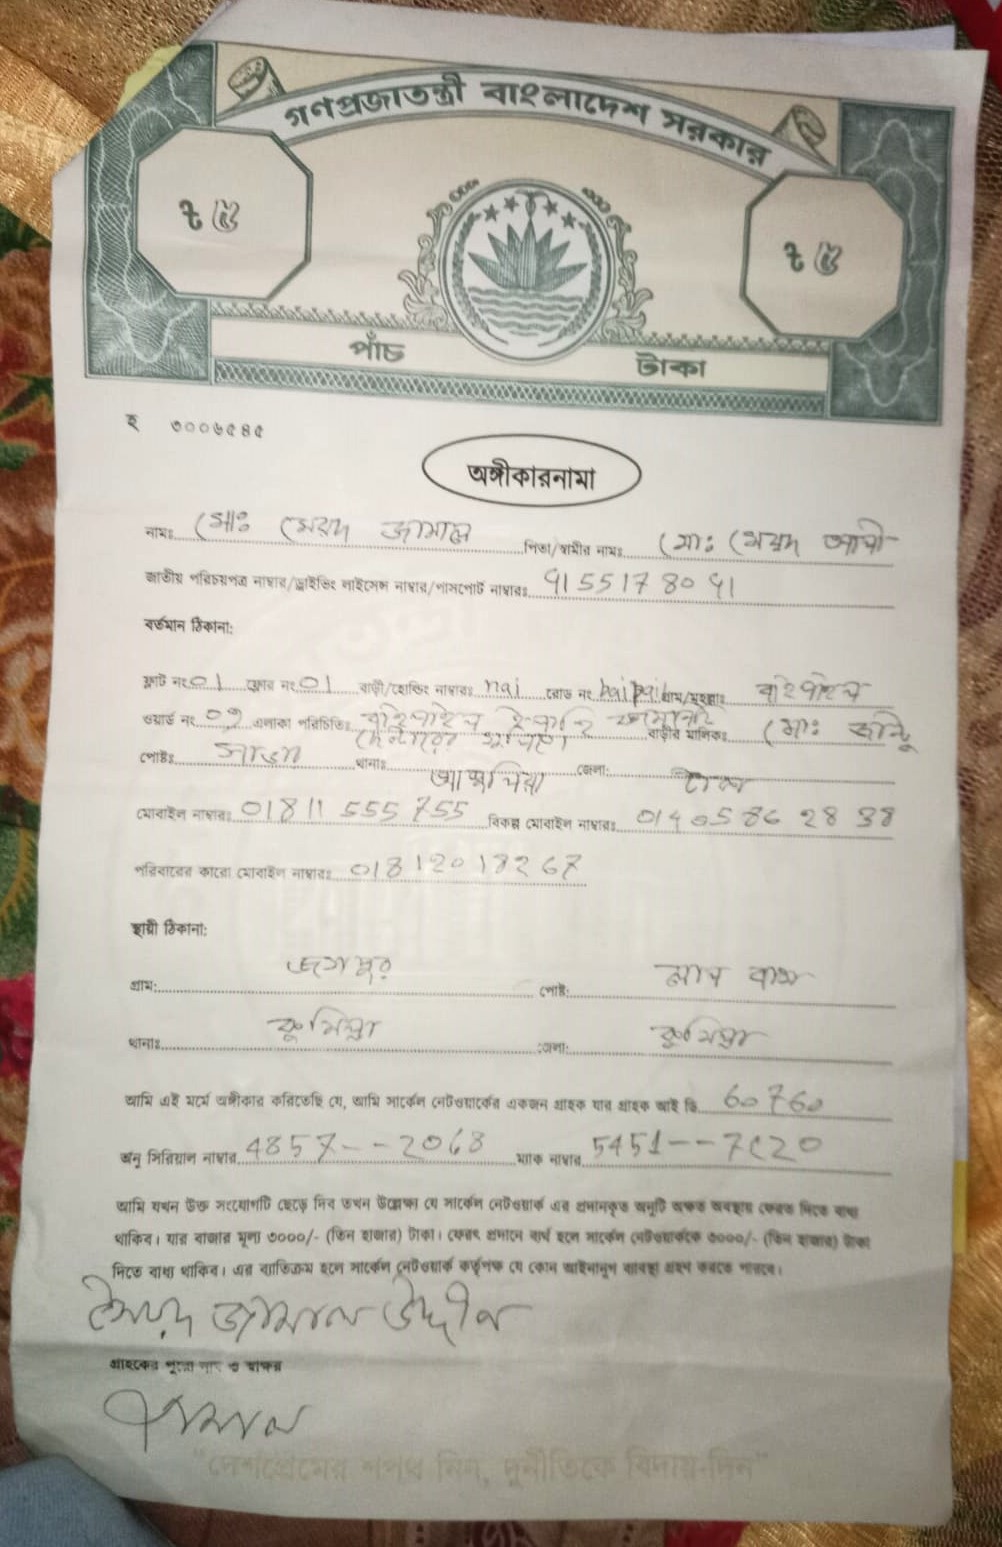 গণপ্রজাতন্ত্রী বাংলাদেশ সরকার
ট ৫ ট ৫
পাঁচ টাকা
হ ৩০০৬৫৪৫
অঙ্গীকারনামা
নামঃ মোঃ সৈয়দ জামাল পিতা/স্বামীর নামঃ মোঃ সৈয়দ আলী
জাতীয় পরিচয়পত্র নাম্বার/ড্রাইভিং লাইসেন্স নাম্বার/পাসপোর্ট নাম্বারঃ ৭155178০৭1
বর্তমান ঠিকানা:
ফ্লাট নং 01 ফ্লোর নং 01 বাড়ী/হোল্ডিং নাম্বারঃ nai রোড নং baipail গ্রাম/মহল্লাঃ বাইপাইল
ওয়ার্ড নং এলাকা পরিচিতিঃ বাইপাইল
বাড়ীর মালিকঃ মোঃ
পোষ্টঃ সাভার থানাঃ আশুলিয়া জেলা: ঢাকা
মোবাইল নাম্বারঃ 01811 555 755 বিকল্প মোবাইল নাম্বারঃ
পরিবারের কারো মোবাইল নাম্বারঃ 01812018267
স্থায়ী ঠিকানা:
গ্রাম: জগপুর পোষ্ট:
থানাঃ কুমিল্লা জেলা: কুমিল্লা
আমি এই মর্মে অঙ্গীকার করিতেছি যে, আমি সার্কেল নেটওয়ার্কের একজন গ্রাহক যার গ্রাহক আই ডি 60760
অনু সিরিয়াল নাম্বার 4857--2068 ম্যাক নাম্বার 5451--7C20
আমি যখন উক্ত সংযোগটি ছেড়ে দিব তখন উল্লেক্ষ্য যে সার্কেল নেটওয়ার্ক এর প্রদানকৃত অনুটি অক্ষত অবস্থায় ফেরত দিতে বাধ্য
থাকিব। যার বাজার মূল্য ৩০০০/- (তিন হাজার) টাকা। ফেরৎ প্রদানে ব্যর্থ হলে সার্কেল নেটওয়ার্ককে ৩০০০/- (তিন হাজার) টাকা
দিতে বাধ্য থাকিব। এর ব্যতিক্রম হলে সার্কেল নেটওয়ার্ক কর্তৃপক্ষ যে কোন আইনানুগ ব্যবস্থা গ্রহন করতে পারবে।
সৈয়দ জামাল উদ্দীন
গ্রাহকের পুরো নাম ও স্বাক্ষর
জামাল
"দেশপ্রেমের শপথ নিন, দুর্নীতিকে বিদায় দিন"